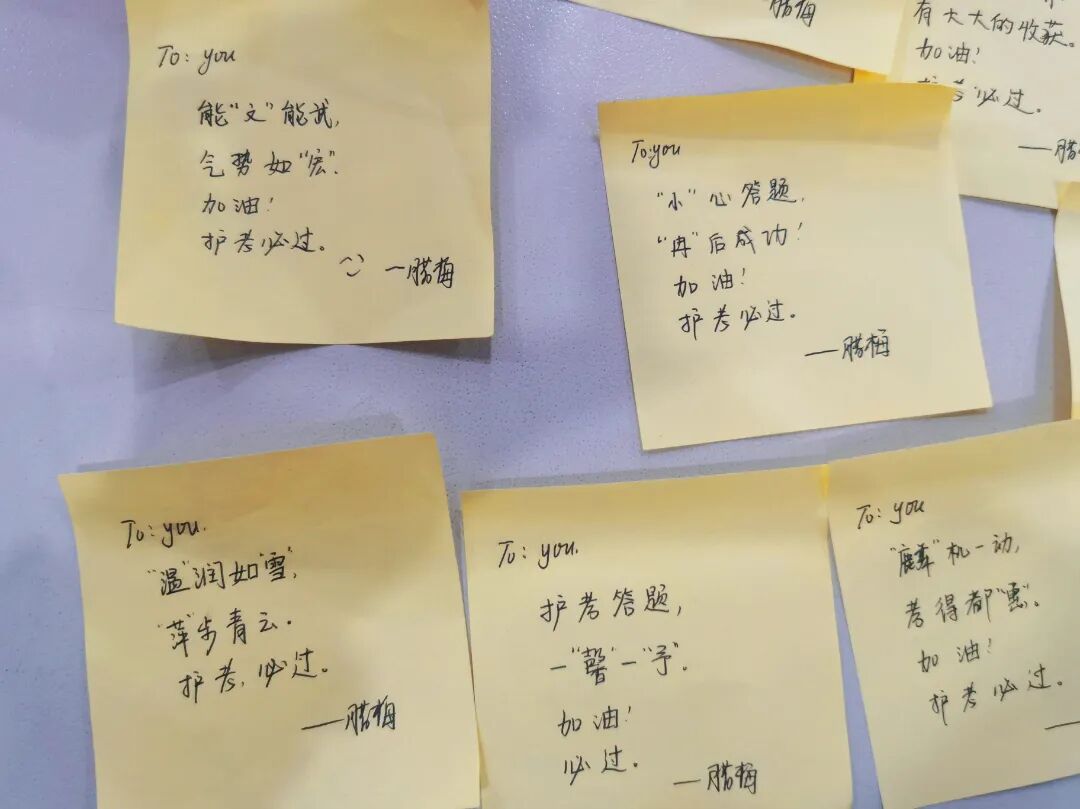 To: you
能“文”能武,
气势如“宏”.
加油!
护考必过。
—腊梅
腊梅
有大大的收获。
加油!
护考必过。
—腊
To:you
“小”心答题,
“冉”后成功!
加油!
护考必过。
—腊梅
To: you.
“温”润如“雪”,
“萍”步青云.
护考,必过。
—腊梅
To: you.
护考答题,
一“馨”一“予”.
加油!
必过。
—腊梅
To: you
“麟”机一动,
考得都“惠”。
加油!
护考必过.